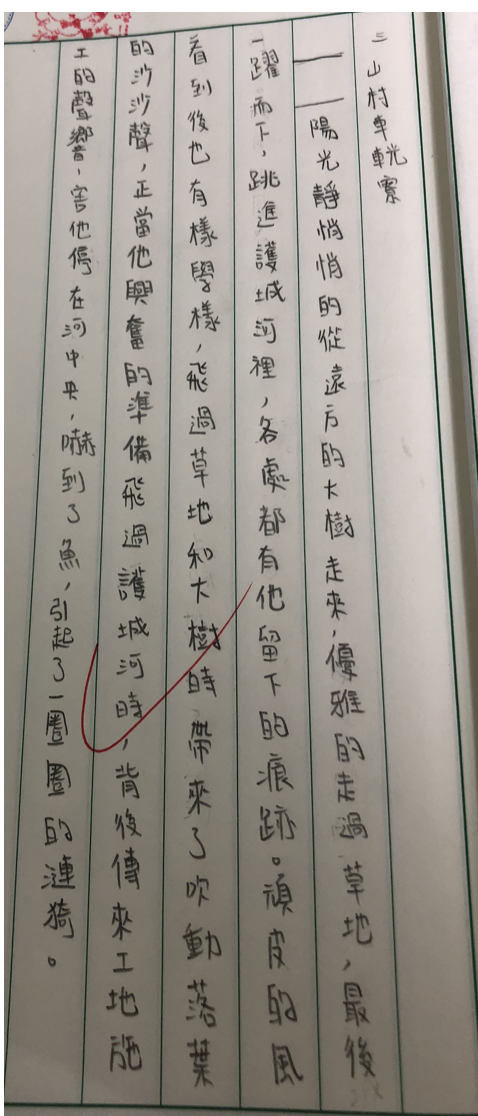 三 山村車軏寮
陽光靜悄悄的從遠方的大樹走來，優雅的走過草地，最後
一躍而下，跳進護城河裡，各處都有他留下的痕跡。頑皮的風
看到後也有樣學樣，飛過草地和大樹時帶來了吹動落葉
的沙沙聲，正當他興奮的準備飛過護城河時，背後傳來工地施
工的聲響，害他停在河中央，嚇到了魚，引起了一圈圈的漣漪。